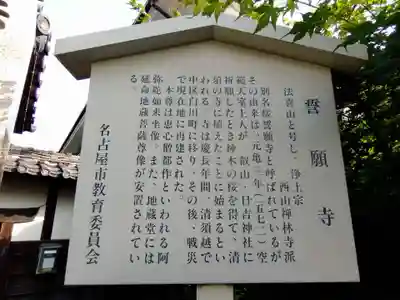 誓願寺
法喜山と号し、浄土宗
西山禅林寺派
別名桜誓願寺と呼ばれているが
その由来は、元亀三年(一五七二)空
範天室上人が、叡山・日吉神社に
祈願したとき神木の桜を得て、清
須の寺に植えたことに始まるとい
われる。寺は慶長年間、清須越で
中区白川町に移り、その後、戦災
で現在地に再建された。
本尊は恵心僧都作といわれる阿
弥陀如来坐像。また、地蔵堂には
延命地蔵菩薩尊像が安置されてい
る。
名古屋市教育委員会